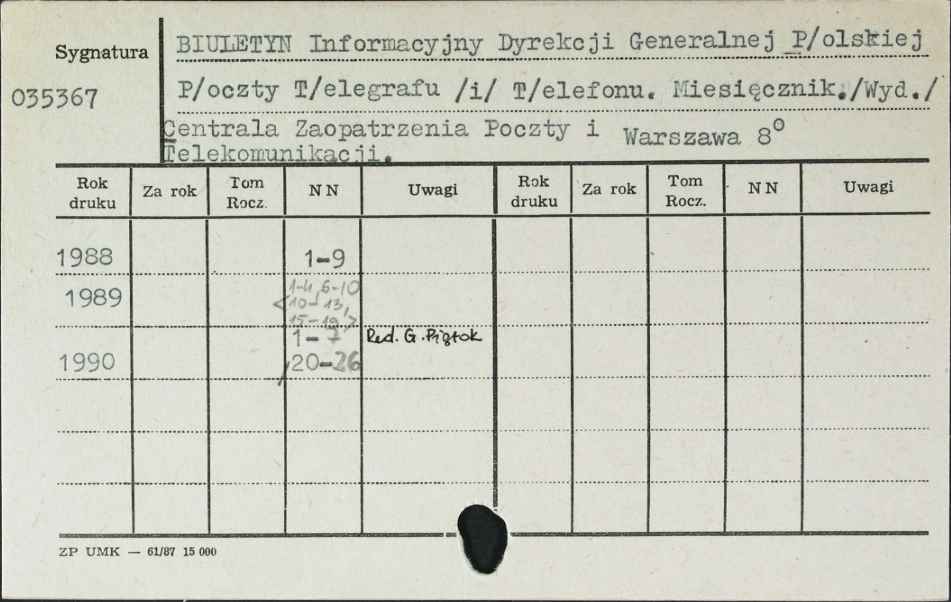 Sygnatura
035367
BIULETYN Informacyjny Dyrekcji Generalnej P/olskiej
P/oczty T/elegrafu /i/ T/elefonu. Miesięcznik./Wyd./
Centrala Zaopatrzenia Poczty i Warszawa 8°
Telekomunikacji.
Rok druku Za rok Tom Rocz. N N Uwagi Rok druku Za rok Tom Rocz. N N Uwagi
1988 1-9
1989 1-4, 6-10
<10-13,
15-19,>
1-7 Red. G. Piątok
1990 /20-26
ZP UMK — 61/87 15 000